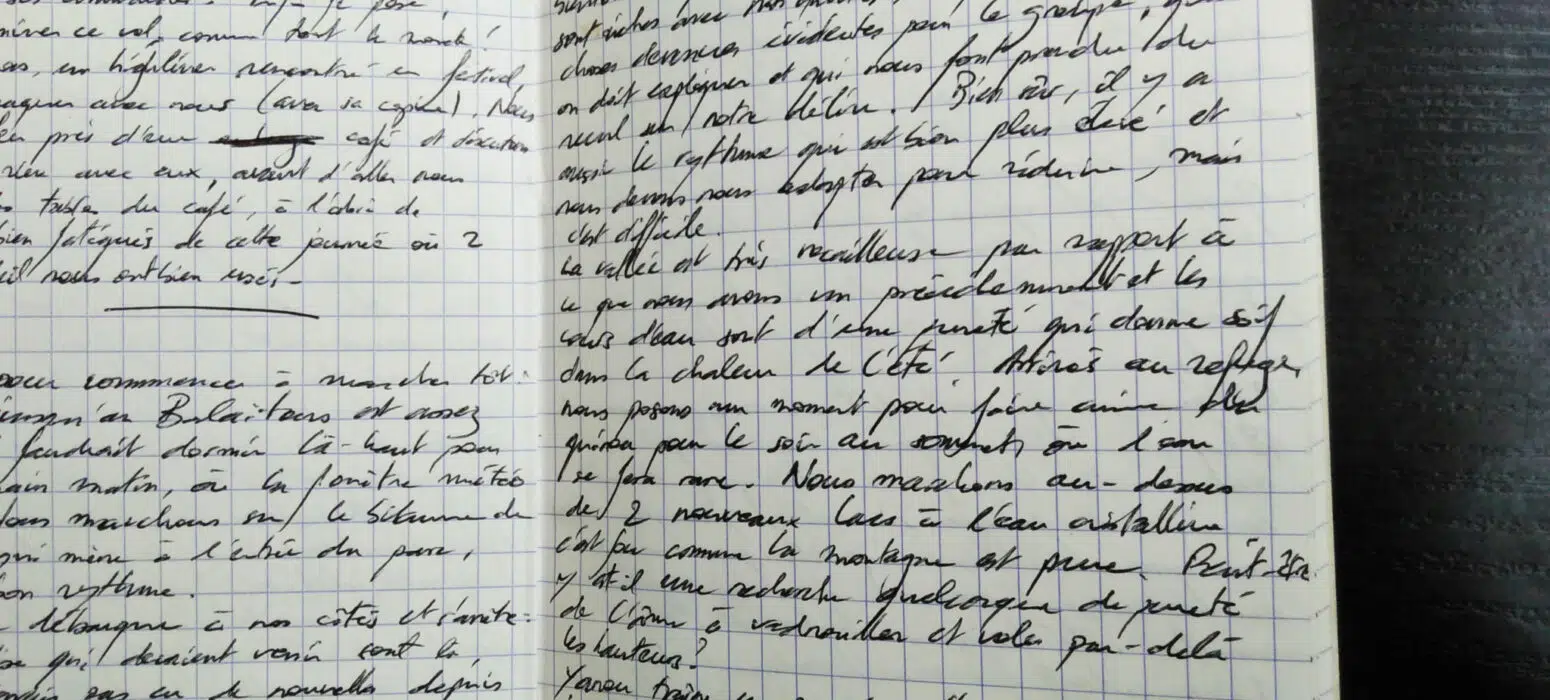 river ce vol, comme tout le monde !
as, un highliner rencontré en festival
avec nous (avec sa copine). Nous
près d'un café et discutons
avec eux, avant d'aller nous
tables du café, à l'abri de
bien fatigués de cette journée où 2
nous ont bien usés -
pour commencer à marcher tôt.
jusqu'au Balaïtous est assez
faudrait dormir là-haut pour
matin, où la fenêtre météo
ous marchons sur le bitume de
qui mène à l'entrée du parc,
bon rythme.
débarque à nos côtés et s'arrête :
qui devaient venir sont là
pas eu de nouvelles depuis
sont riches avec
choses devenues évidentes pour le groupe,
on doit expliquer et qui nous font prendre du
recul sur notre délire. Bien sûr, il y a
aussi le rythme qui est bien plus élevé et
nous devons nous adapter pour réduire, mais
c'est difficile.
La vallée est très rocailleuse par rapport à
ce que nous avons vu précédemment et les
cours d'eau sont d'une pureté qui donne soif
dans la chaleur de l'été. Arrivés au refuge,
nous posons un moment pour faire cuire du
quinoa pour le soir au sommet, où l'eau
se fera rare. Nous marchons au-dessus
de 2 nouveaux lacs à l'eau cristalline
c'est fou comme la montagne est pure. Peut-être
y at-il une recherche quelconque de pureté
de l'âme à vadrouiller et voler par-delà
les hauteurs ?